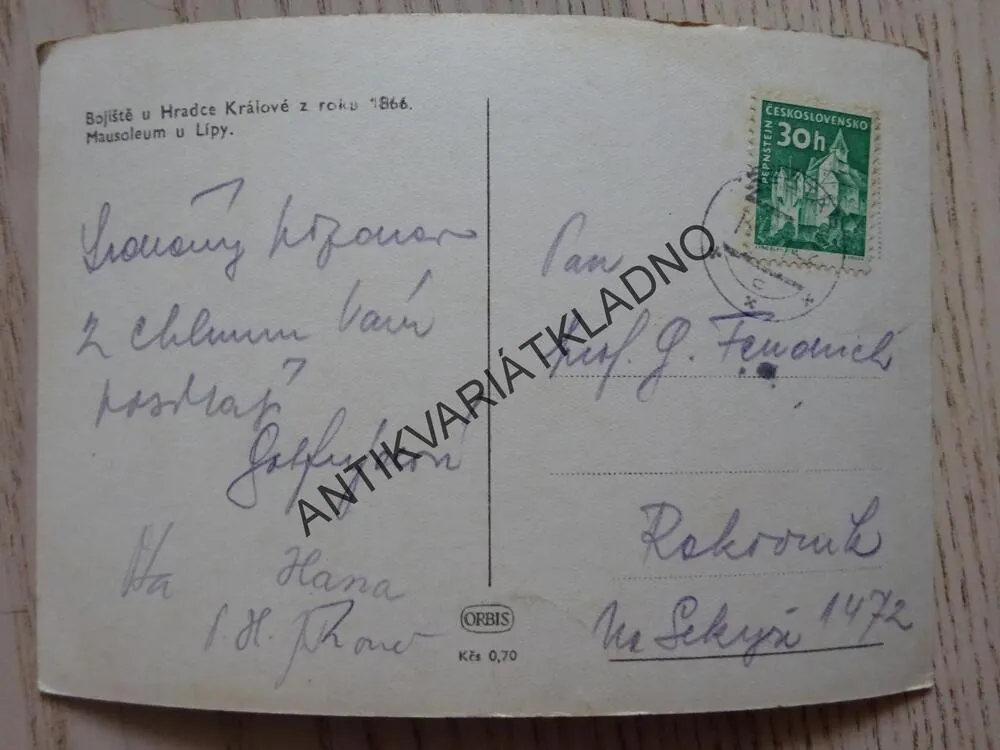 Bojiště u Hradce Králové z roku 1866.
Mausoleum u Lípy.
Srdečný pozdrav
z Chlumu Vám
posílají
Hana
ORBIS
Kčs 0,70
ČESKOSLOVENSKO
30h
PERNŠTEJN
Pan
prof. G. Fendrich
Rakovník
Na Sekyře 1472
ANTIKVARIÁTKLADNO